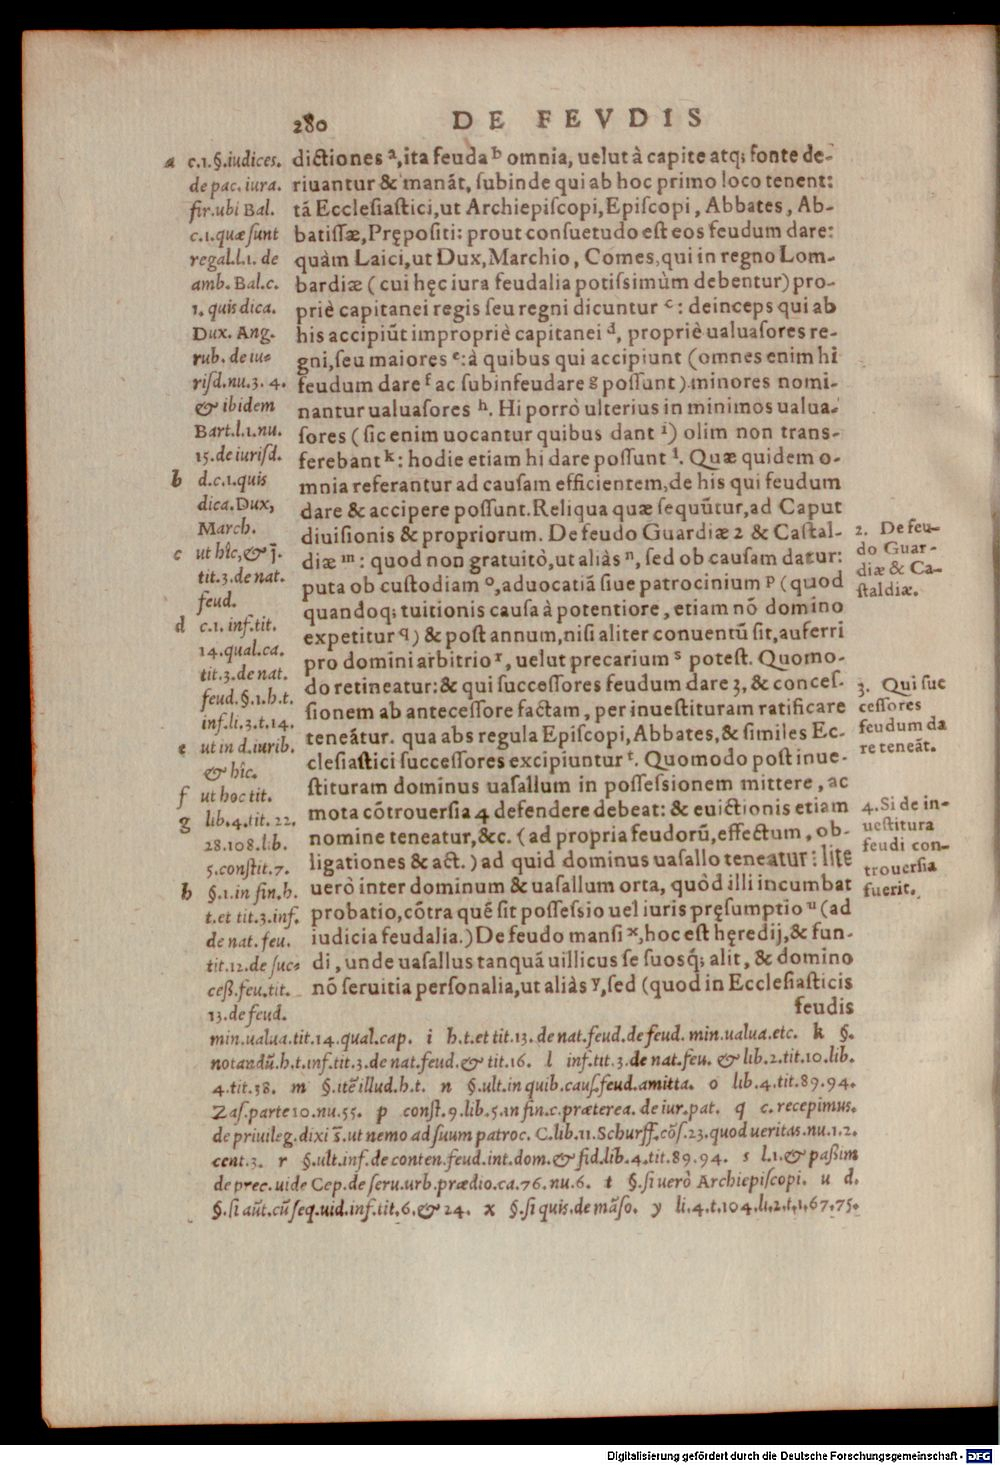 280 DE FEVDIS
dictiones ᵃ, ita feuda ᵇ omnia, uelut à capite atq; fonte de-
riuantur & manãt, subinde qui ab hoc primo loco tenent:
tã Ecclesiastici, ut Archiepiscopi, Episcopi, Abbates, Ab-
batissæ, Prępositi: prout consuetudo est eos feudum dare:
quàm Laici, ut Dux, Marchio, Comes, qui in regno Lom-
bardiæ ( cui hęc iura feudalia potissimùm debentur) pro-
priè capitanei regis seu regni dicuntur ᶜ: deinceps qui ab
his accipiũt impropriè capitanei ᵈ, propriè ualuasores re-
gni, seu maiores ᵉ: à quibus qui accipiunt (omnes enim hi
feudum dare ᶠ ac subinfeudare ᵍ possunt) minores nomi-
nantur ualuasores ʰ. Hi porrò ulterius in minimos ualua-
sores ( sic enim uocantur quibus dant ⁱ) olim non trans-
ferebant ᵏ: hodie etiam hi dare possunt ˡ. Quæ quidem o-
mnia referantur ad causam efficientem, de his qui feudum
dare & accipere possunt. Reliqua quæ sequũtur, ad Caput
diuisionis & propriorum. De feudo Guardiæ 2 & Castal-
diæ ᵐ: quod non gratuitò, ut aliàs ⁿ, sed ob causam datur:
puta ob custodiam ᵒ, aduocatiã siue patrocinium ᵖ (quod
quandoq; tuitionis causa à potentiore, etiam nõ domino
expetitur ^q) & post annum, nisi aliter conuentũ sit, auferri
pro domini arbitrio ʳ, uelut precarium ˢ potest. Quomo-
do retineatur: & qui successores feudum dare 3, & conces-
sionem ab antecessore factam, per inuestituram ratificare
teneãtur. qua abs regula Episcopi, Abbates, & similes Ec-
clesiastici successores excipiuntur ᵗ. Quomodo post inue-
stituram dominus uasallum in possessionem mittere, ac
mota cõtrouersia 4 defendere debeat: & euictionis etiam
nomine teneatur, &c. ( ad propria feudorũ, effectum, ob-
ligationes & act. ) ad quid dominus uasallo teneatur: lite
uerò inter dominum & uasallum orta, quòd illi incumbat
probatio, cõtra quẽ sit possessio uel iuris pręsumptio ᵘ (ad
iudicia feudalia.) De feudo mansi ˣ, hoc est hęredij, & fun-
di, unde uasallus tanquã uillicus se suosq; alit, & domino
nõ seruitia personalia, ut aliàs ʸ, sed (quod in Ecclesiasticis
feudis
a c.1. §. iudices.
de pac. iura.
fir. ubi Bal.
c.1. quæ sunt
regal. l.1. de
amb. Bal. c.
1. quis dica.
Dux. Ang.
rub. de iu-
risd. nu. 3. 4.
& ibidem
Bart. l.1. nu.
15. de iurisd.
b d.c.1. quis
dica. Dux,
March.
c ut hîc, & j̃.
tit. 3. de nat.
feud.
d c.1. inf. tit.
14. qual. ca.
tit. 3. de nat.
feud. §.1. h.t.
inf. li. 3. t. 14.
e ut in d. iurib.
& hîc.
f ut hoc tit.
g lib. 4. tit. 22.
28. 108. lib.
5. constit. 7.
h §.1. in fin. h.
t. et tit. 3. inf.
de nat. feu.
tit. 12. de suc-
ceß. feu. tit.
13. de feud.
2. De feu-
do Guar-
diæ & Ca-
staldiæ.
3. Qui suc
cessores
feudum da
re teneãt.
4. Si de in-
uestitura
feudi con-
trouersia
fuerit.
min. ualua. tit. 14. qual. cap. i h.t. et tit. 13. de nat. feud. de feud. min. ualua. etc. k §.
notandũ. h.t. inf. tit. 3. de nat. feud. & tit. 16. l inf. tit. 3. de nat. feu. & lib. 2. tit. 10. lib.
4. tit. 38. m §. itẽ illud. h.t. n §. ult. in quib. caus. feud. amitta. o lib. 4. tit. 89. 94.
Zas. parte 10. nu. 55. p const. 9. lib. 5. in fin. c. præterea. de iur. pat. q c. recepimus.
de priuileg. dixi s̃. ut nemo ad suum patroc. C. lib. 11. Schurff. cõs. 23. quod ueritas. nu. 1. 2.
cent. 3. r §. ult. inf. de conten. feud. int. dom. & fid. lib. 4. tit. 89. 94. s l.1. & paßim
de prec. uide Cep. de seru. urb. prædio. ca. 76. nu. 6. t §. si uerò Archiepiscopi. u d.
§. si aũt. cũ seq. uid. inf. tit. 6. & 24. x §. si quis. de mãso. y li. 4. t. 104. li. 2. t. 1. 67. 75.
Digitalisierung gefördert durch die Deutsche Forschungsgemeinschaft - DFG